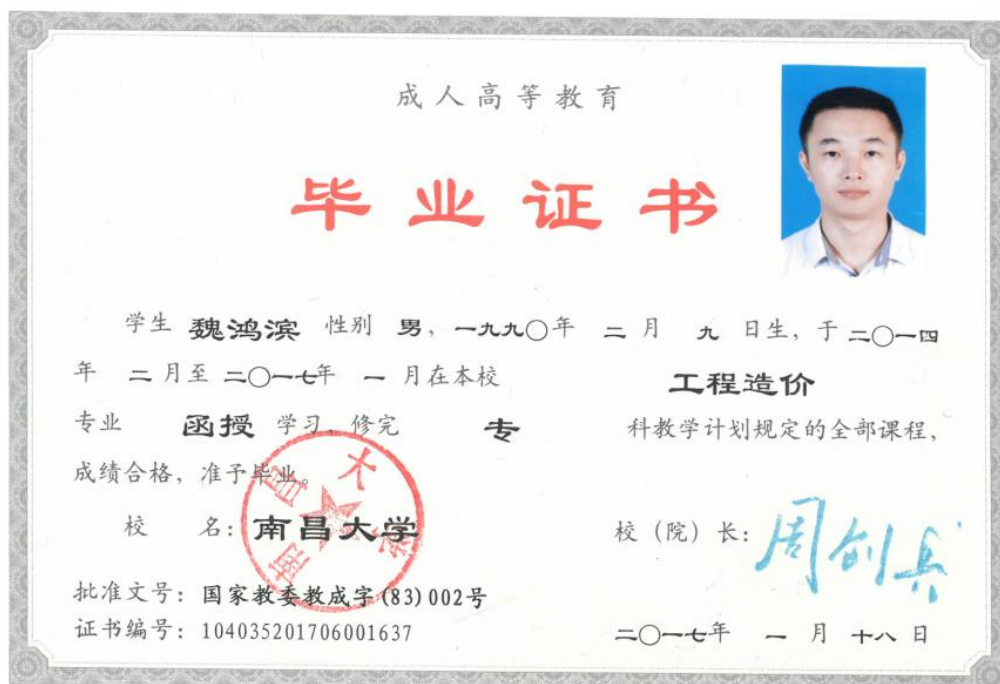 成人高等教育
毕业证书
学生 魏鸿滨 性别 男，一九九〇年 二 月 九 日生，于 二〇一四
年 二 月至 二〇一七年 一 月在本校 工程造价
专业 函授 学习，修完 专 科教学计划规定的全部课程，
成绩合格，准予毕业。
校 名：南昌大学
校（院）长：周创兵
南昌大学
批准文号：国家教委教成字(83)002号
证书编号：104035201706001637
二〇一七年 一 月 十八 日